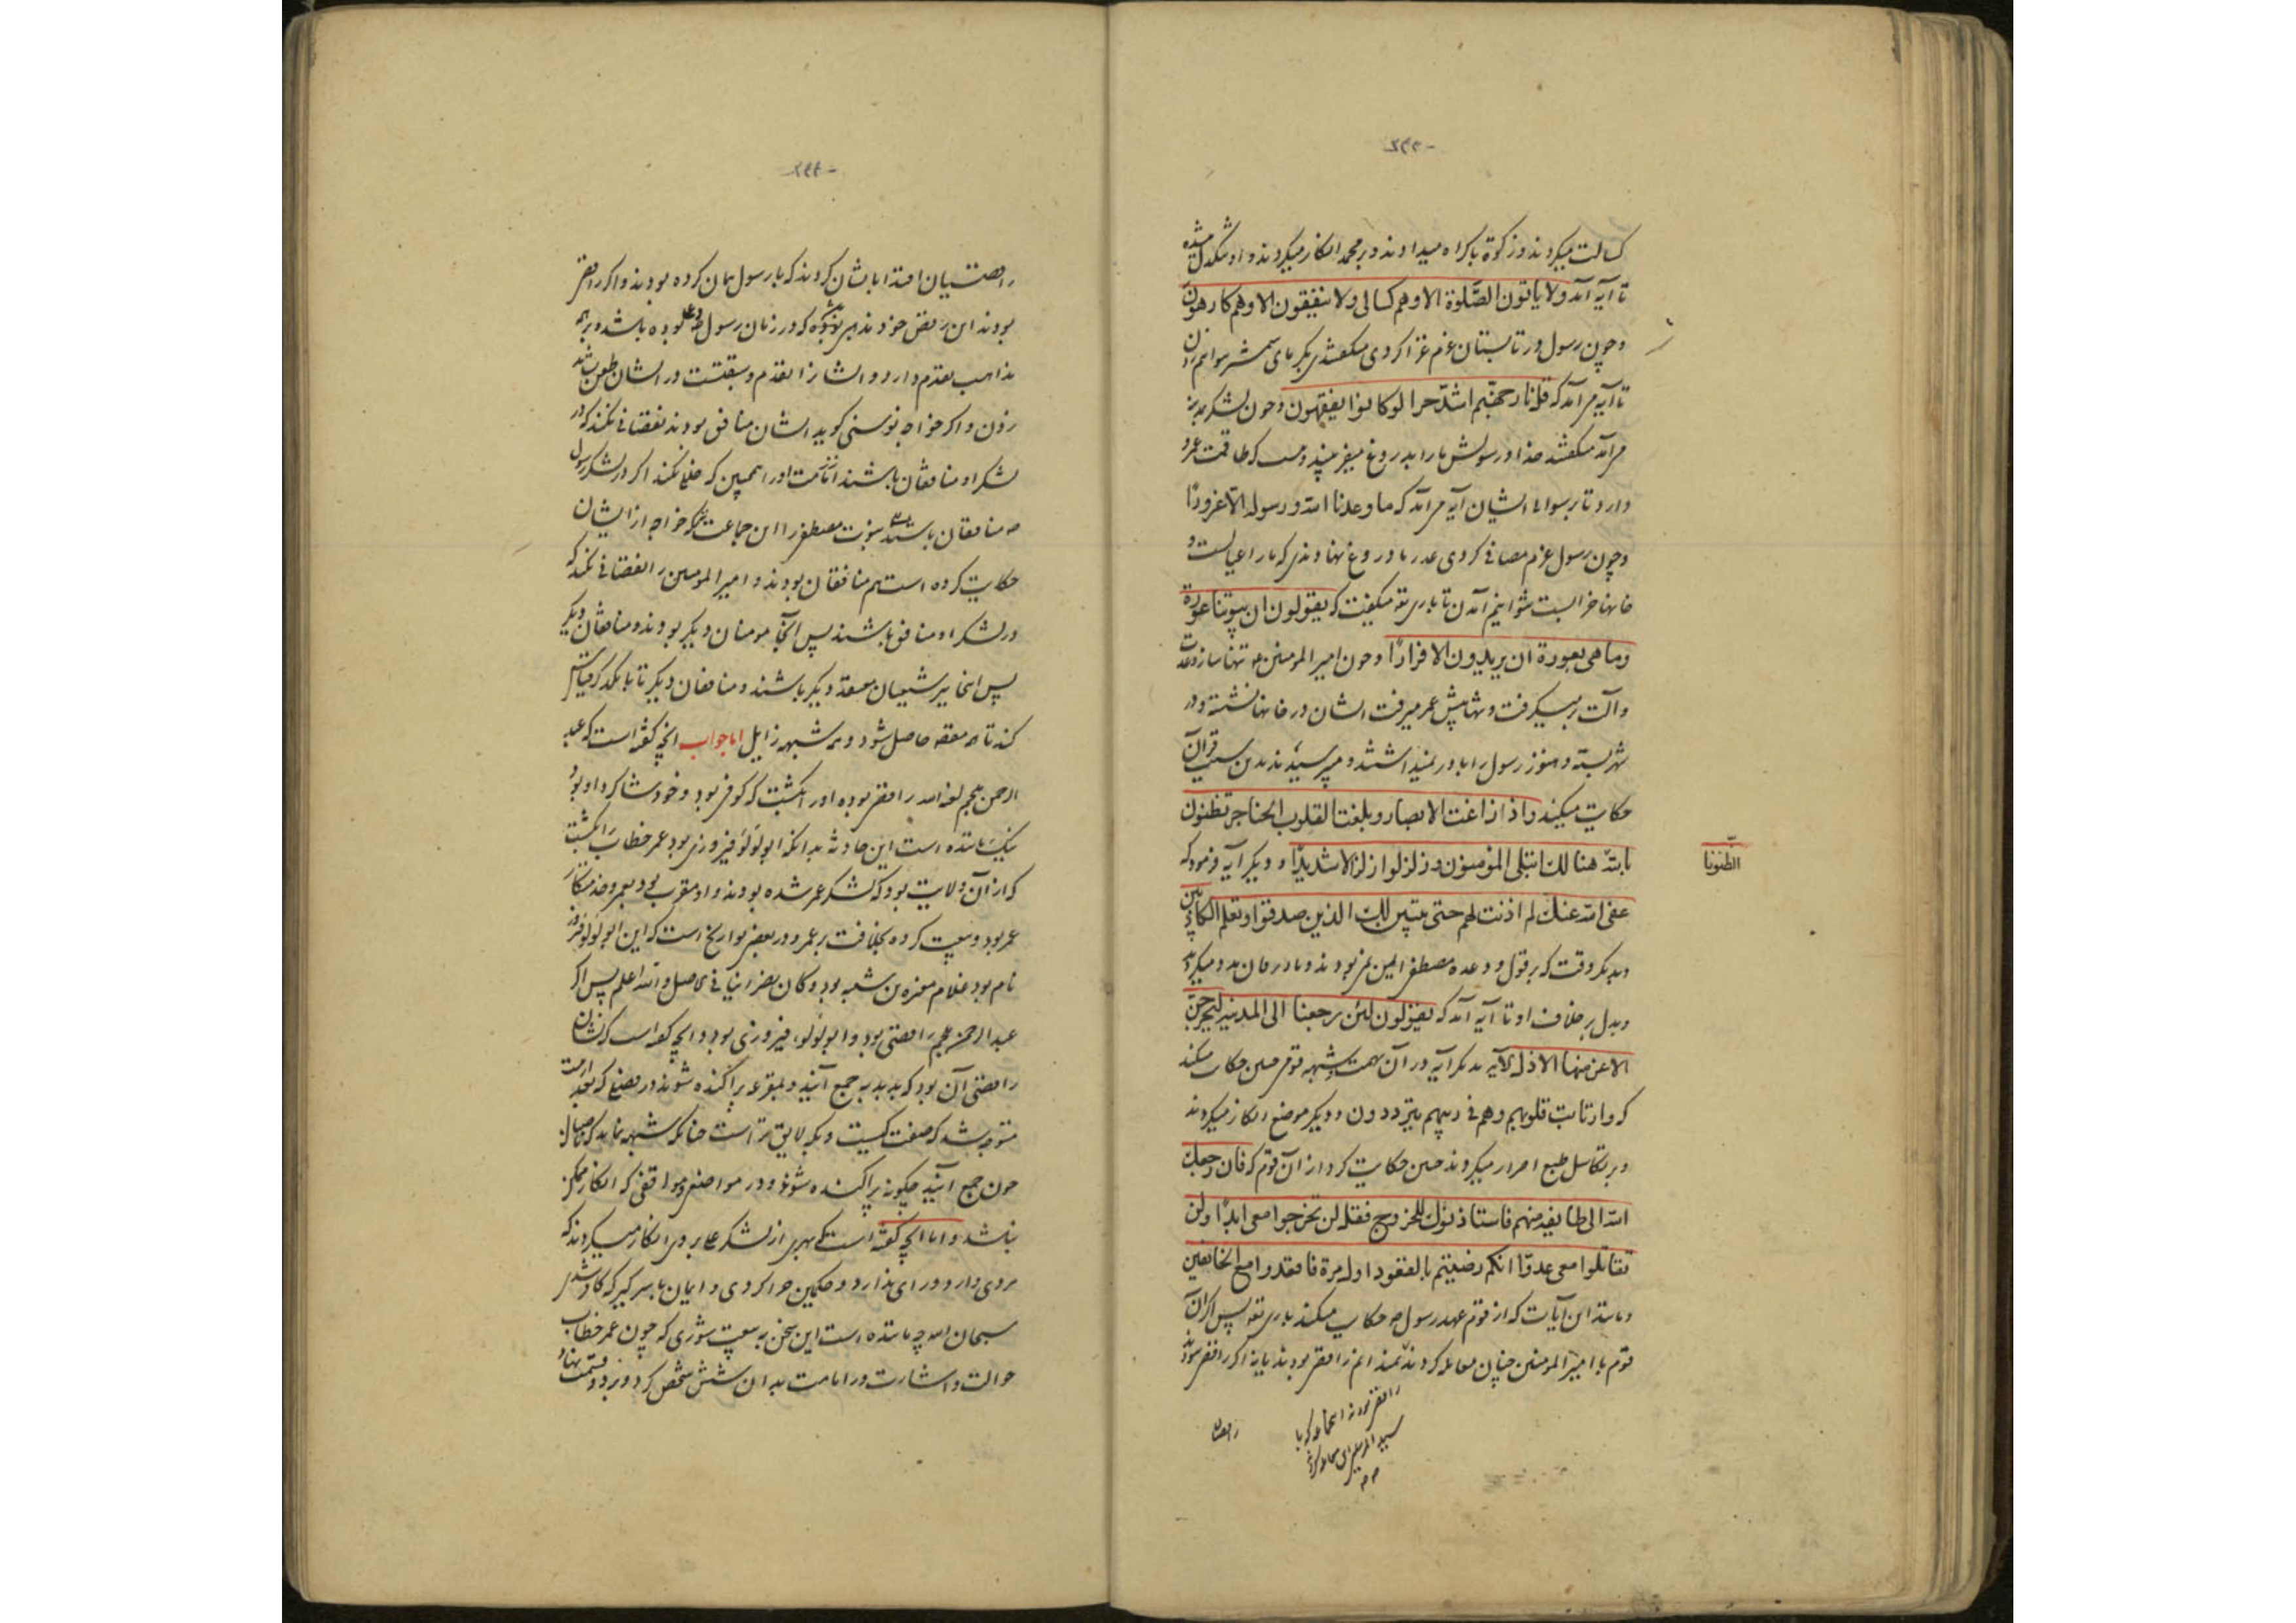 کسالت میکردند و زکوة باکراه میدادند و بر محمد انکار میکردند و او تنگدل میشد
تا آیه آمد ولا یأتون الصّلوة الا وهم کسالی ولا ینفقون الا وهم کارهون
و چون رسول در تابستان عزم غزا کردی میگفتندی بگرمای
تا آیه مرآمد که قل نار جهنّم اشدّ حرا لو کانوا یفقهون و چون لشکر
مرآمد میگفتند خدا و رسولش ما را بدروغ میفریبند و کس که طاقت عمرو
دارد تا برسوائی ایشان آیه مرآمد که ما وعدنا الله و رسوله الّا غرورًا
و چون رسول عزم مصافی کردی عذرها دروغ نهادندی که ما را عیالست و
خانها خرابست نتوانیم آمدن تا باری تع میگفت که یقولون ان بیوتنا عورة
وما هی بعورة ان یریدون الا فرارًا و چون امیر المومنین ع تنها ساز و عدت
و آلت برمیگرفت و تنها پیش عمرو میرفت ایشان در خانها نشسته و در
شهر بسته و هنوز رسول را باور نمیداشتند و میپرسیدند بدین سبب قرآن
حکایت میکند و اذ زاغت الابصار و بلغت القلوب الحناجر و تظنون
بالله هنالک ابتلی المؤمنون و زلزلوا زلزالا شدیدًا و دیگر آیه فرمود که
الظنونا
عفی الله عنک لم اذنت لهم حتی یتبین لک الذین صدقوا وتعلم الکاذبین
و بدیگر وقت که بر قول و وعده مصطفی ایمن نبودند و باور بزبان بدو میکردند
و بدل بر خلاف او تا آیه آمد که یقولون لئن رجعنا الی المدینه لیخرجنّ
الاعز منها الاذل الآیه بدیگر آیه در آن تهمت و شبهه قوم چنین حکایت میکند
که وارتابت قلوبهم وهم فی ریبهم یترددون و دیگر موضع انکار میکردند
و بر تکاسل طبع اصرار میکردند چنین حکایت کرد از آن قوم که فان رجعک
الله الی طایفة منهم فاستأذنوک للخروج فقل لن تخرجوا معی ابدًا ولن
تقاتلوا معی عدوّا انکم رضیتم بالقعود اول مرة فاقعدوا مع الخالفین
و مانند این آیات که از قوم عهد رسول ص حکایت میکند باری تع پس اگر آن
قوم با امیر المومنین چنان معامله کردند ندانم رافضی بودند یا نه اگر رافضی نبودند
رافضی بودند آنجماعه که با
سید المرسلین این معامله کردند
رافضیان
رافضیان اقتدا بایشان کردند که با رسول همان کرده بودند و اگر رافضی
بودند این رفض خود مذهبی بوده که در زمان رسول ص بوده باشد و بر همه
مذاهب تقدم دارد و ایشان را تقدم و سبقتست در ایشان طعن نباید
زدن و اگر خواجه نوسنی گوید ایشان منافق بودند نقصانی نکند که در
لشکر او منافقان باشند امامت او را همچنین که خللی نکند اگر در لشکر رسول
ص منافقان باشند نبوت مصطفی را این جماعت که خواجه از ایشان
حکایت کرده است هم منافقان بودند و امیر المومنین را نقصانی نکند که
در لشکر او منافق باشند پس آنجا مومنان دیگر بودند و منافقان دیگر
پس اینجا نیز شیعیان معتقد دیگر باشند و منافقان دیگر تا با یکدیگر قیاس
کند تا معرفه حاصل شود و شبهه زایل اما جواب آنچه گفته است که عبد
الرحمن ملجم لعنه الله رافضی بوده او را بکشت که کوفی بود و خود شاگرد او بود
نیک مانده است این حادثه بدانکه ابولؤلؤ فیروزی بود عمر خطاب را بکشت
که از آن ولایت بود که لشکر عمر شده بودند و او مقرب بود بعمر و خدمتکار
عمر بود و بیعت کرده بخلافت بر عمر و در بعضی تواریخ است که این ابولؤلؤ فیروز
نام بود غلام مغیره بن شعبه بود و کان نصرانیا فی الاصل و الله اعلم پس اگر
عبد الرحمن ملجم رافضی بود و ابولؤلؤ فیروزی بود و آنچه گفته است که نشان
رافضی آن بود که بدبدبه جمع آیند و بمقرعه پراکنده شوند در مصنع که
متوجه شد که صفت کیست و بکه لایق تر است چنانکه شبهه نماند که
چون جمع آیند چگونه پراکنده شوند و در مواضع و مواقفی که انکار ممکن
نباشد و اما آنچه گفته است که بهری از لشکر علی بروی انکار میکردند که
مردی دارد و رای ندارد و حکمین چرا کردی و ایمان با سر گیر که کافر شدی
سبحان الله چه مانده است این سخن به بیعت شوری که چون عمر خطاب
حوالت و اشارت در امامت بدان شش شخص کرد و زبر